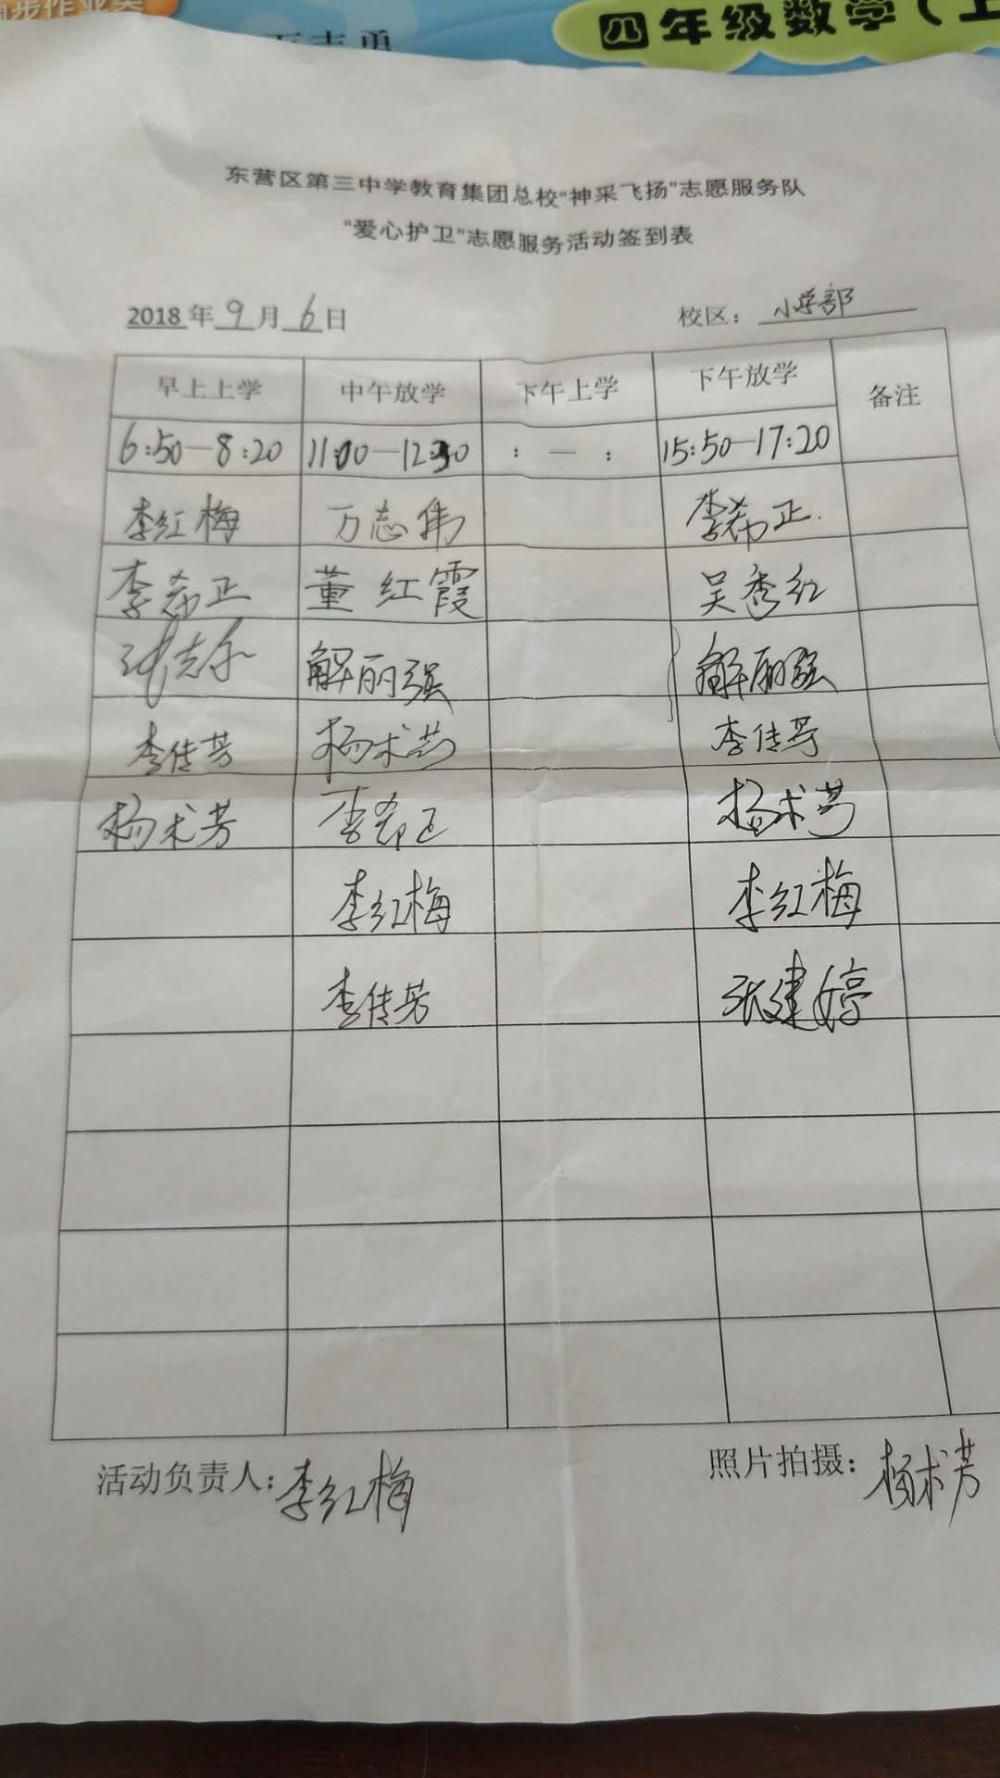 四年级数学（上
东营区第三中学教育集团总校“神采飞扬”志愿服务队
“爱心护卫”志愿服务活动签到表
2018年9月6日 校区：小学部
早上上学 中午放学 下午上学 下午放学 备注
6:50—8:20 11:00—12:30 : — : 15:50—17:20
李红梅 万志伟 李希正
李希正 董红霞 吴秀红
解丽强 解丽强
李传芳 杨术芳 李传芳
杨术芳 李希正 杨术芳
李红梅 李红梅
李传芳 张建婷
活动负责人：李红梅 照片拍摄：杨术芳